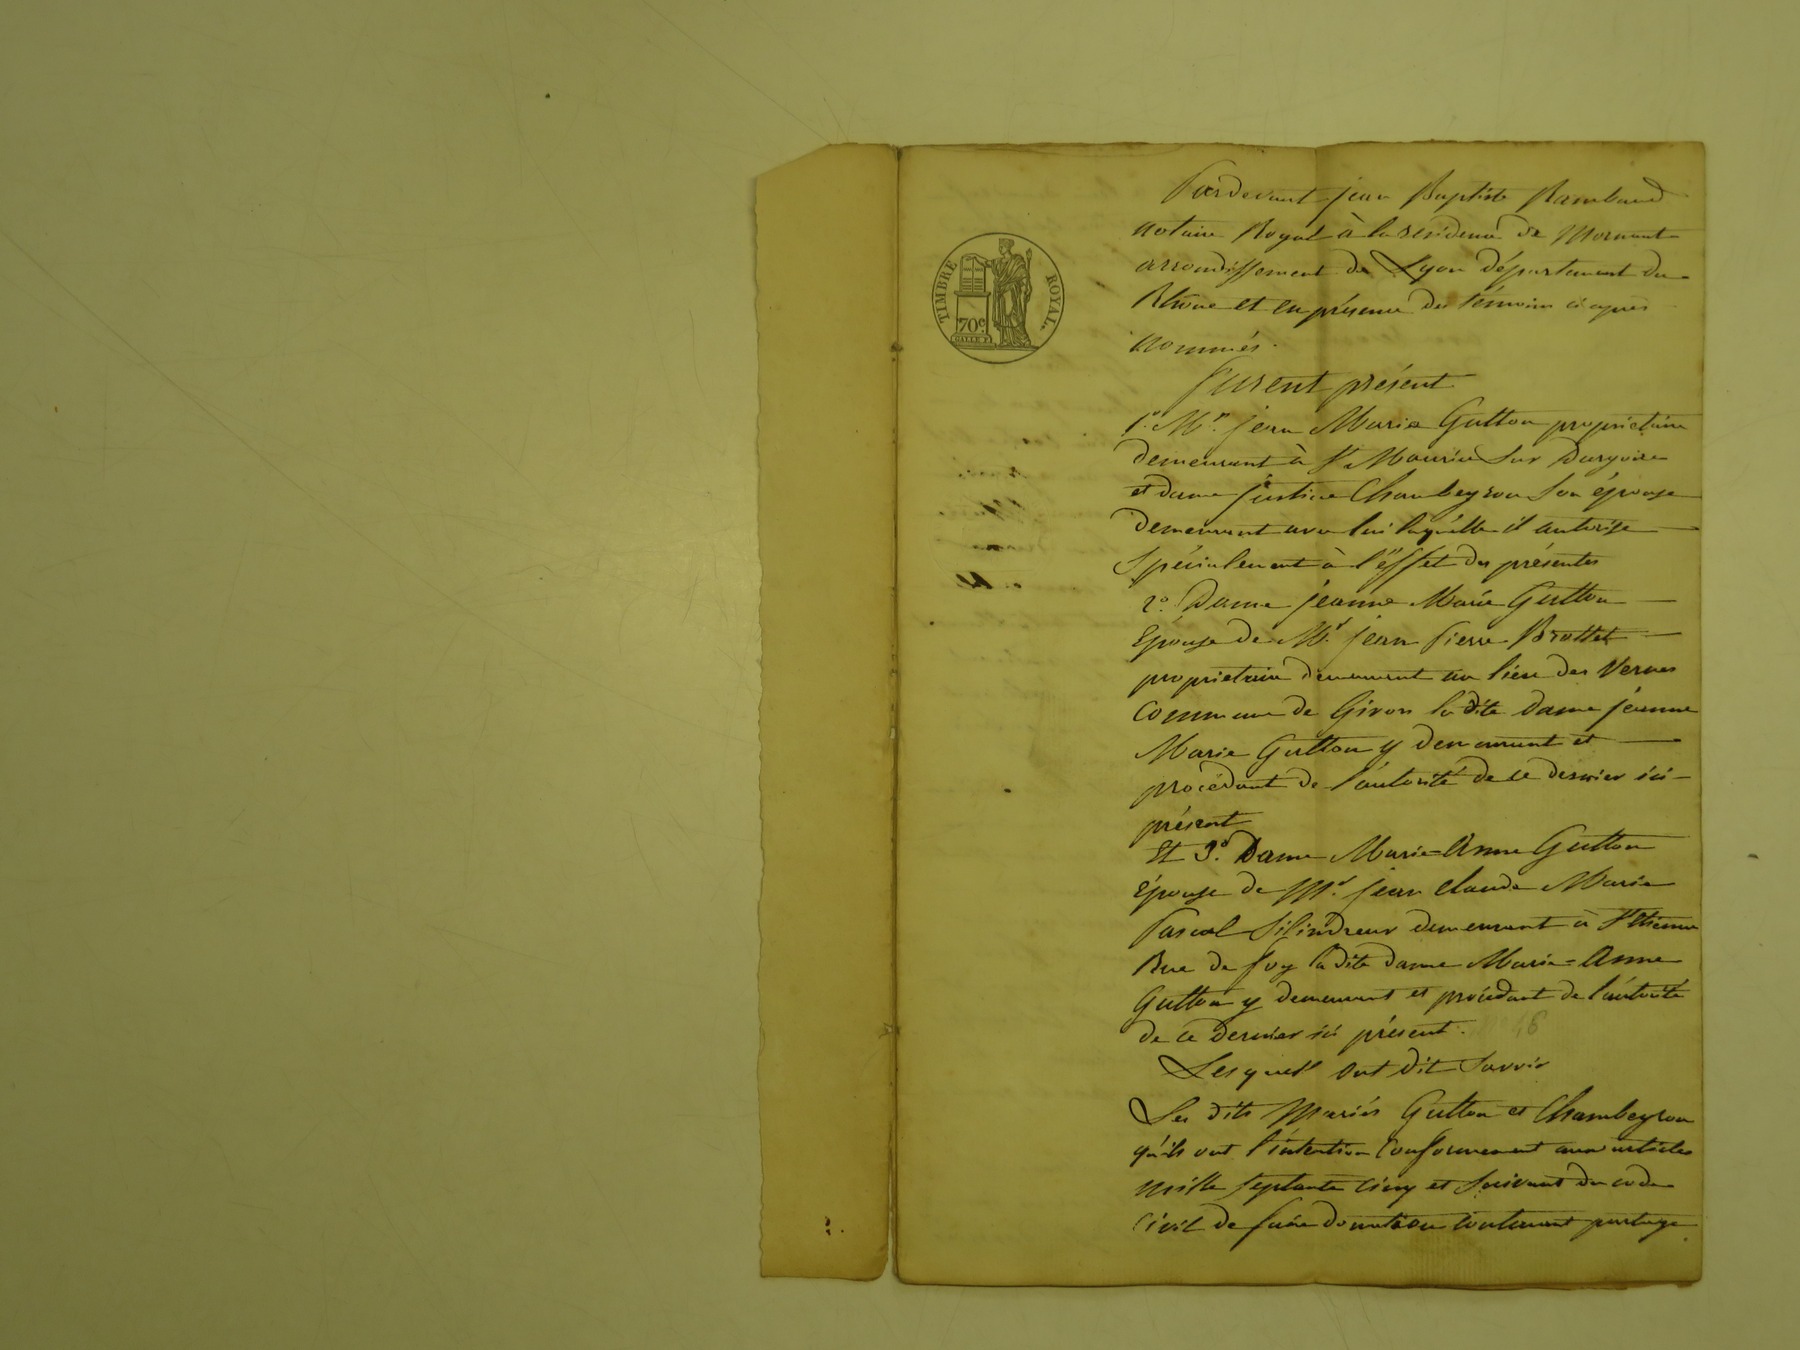 TIMBRE ROYAL
70c.
Pardevant jean Baptiste Rambaud
notaire Royal à la residence de Mornant
arrondissement de Lyon département du
Rhône et en présence des témoins ci après
nommés.
furent présent
1.° Mr. jean Marie Gutton proprietaire
demeurant à St Maurice sur Dargoire
et dame justine Chambeyron son épouse
demeurant avec lui laquelle il autorise
Spécialement à l'éffet des présentes
2.° Dame jeanne Marie Gutton
Epouse de Mr. jean pierre Brottet
proprietaire demeurant au lieu des Vernes
Commune de Givors la dite dame jeanne
Marie Gutton y demeurant et
procédant de l'autorité de ce dernier ici
présent
Et 3.° Dame Marie=Anne Gutton
épouse de Mr. jean claude Marie
Pascal Silindreur demeurant à St Etienne
Rue de foy la dite dame Marie=Anne
Gutton y demeurant et procédant de l'autorité
de ce dernier ici présent.
Lesquels ont dit Savoir
Les dits Mariés Gutton et Chambeyron
qu'ils ont l'intention Conformement aux articles
mille septante cinq et suivant du code
Civil de faire donation contenant partage